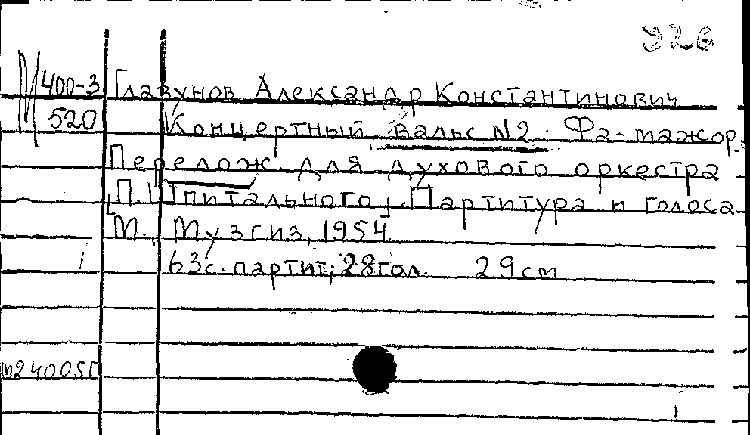 926
М 400-3 Глазунов Александр Константинович
520 Концертный вальс №2. Фа-мажор.
Перелож. для духового оркестра
П. Шпитального. Партитура и голоса
М., Музгиз, 1954
63с. партит; 28гол. 29см